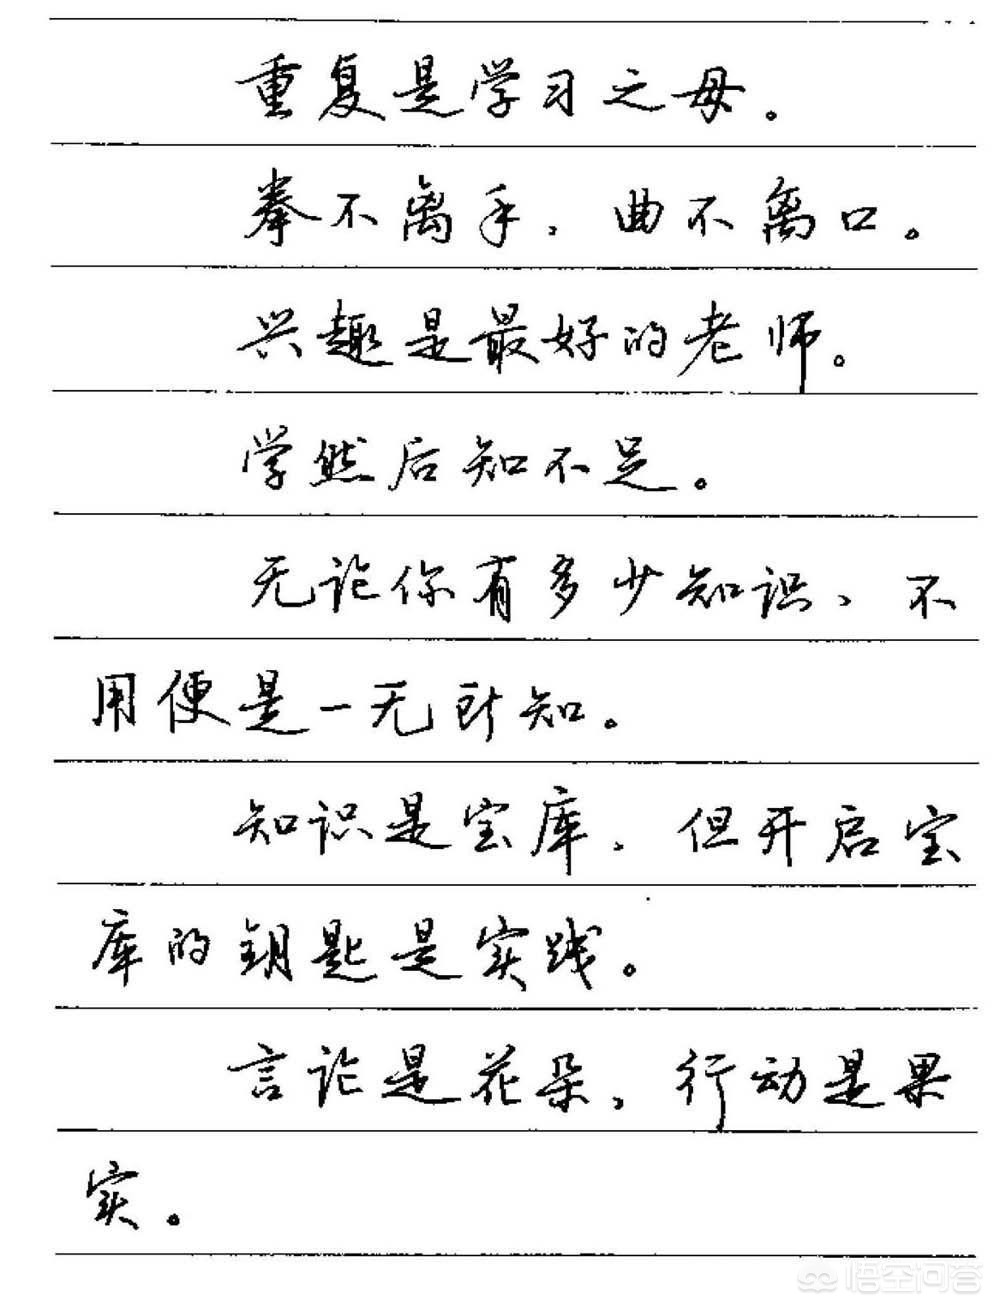 重复是学习之母。
拳不离手，曲不离口。
兴趣是最好的老师。
学然后知不足。
无论你有多少知识，不
用便是一无所知。
知识是宝库，但开启宝
库的钥匙是实践。
言论是花朵，行动是果
实。
悟空问答